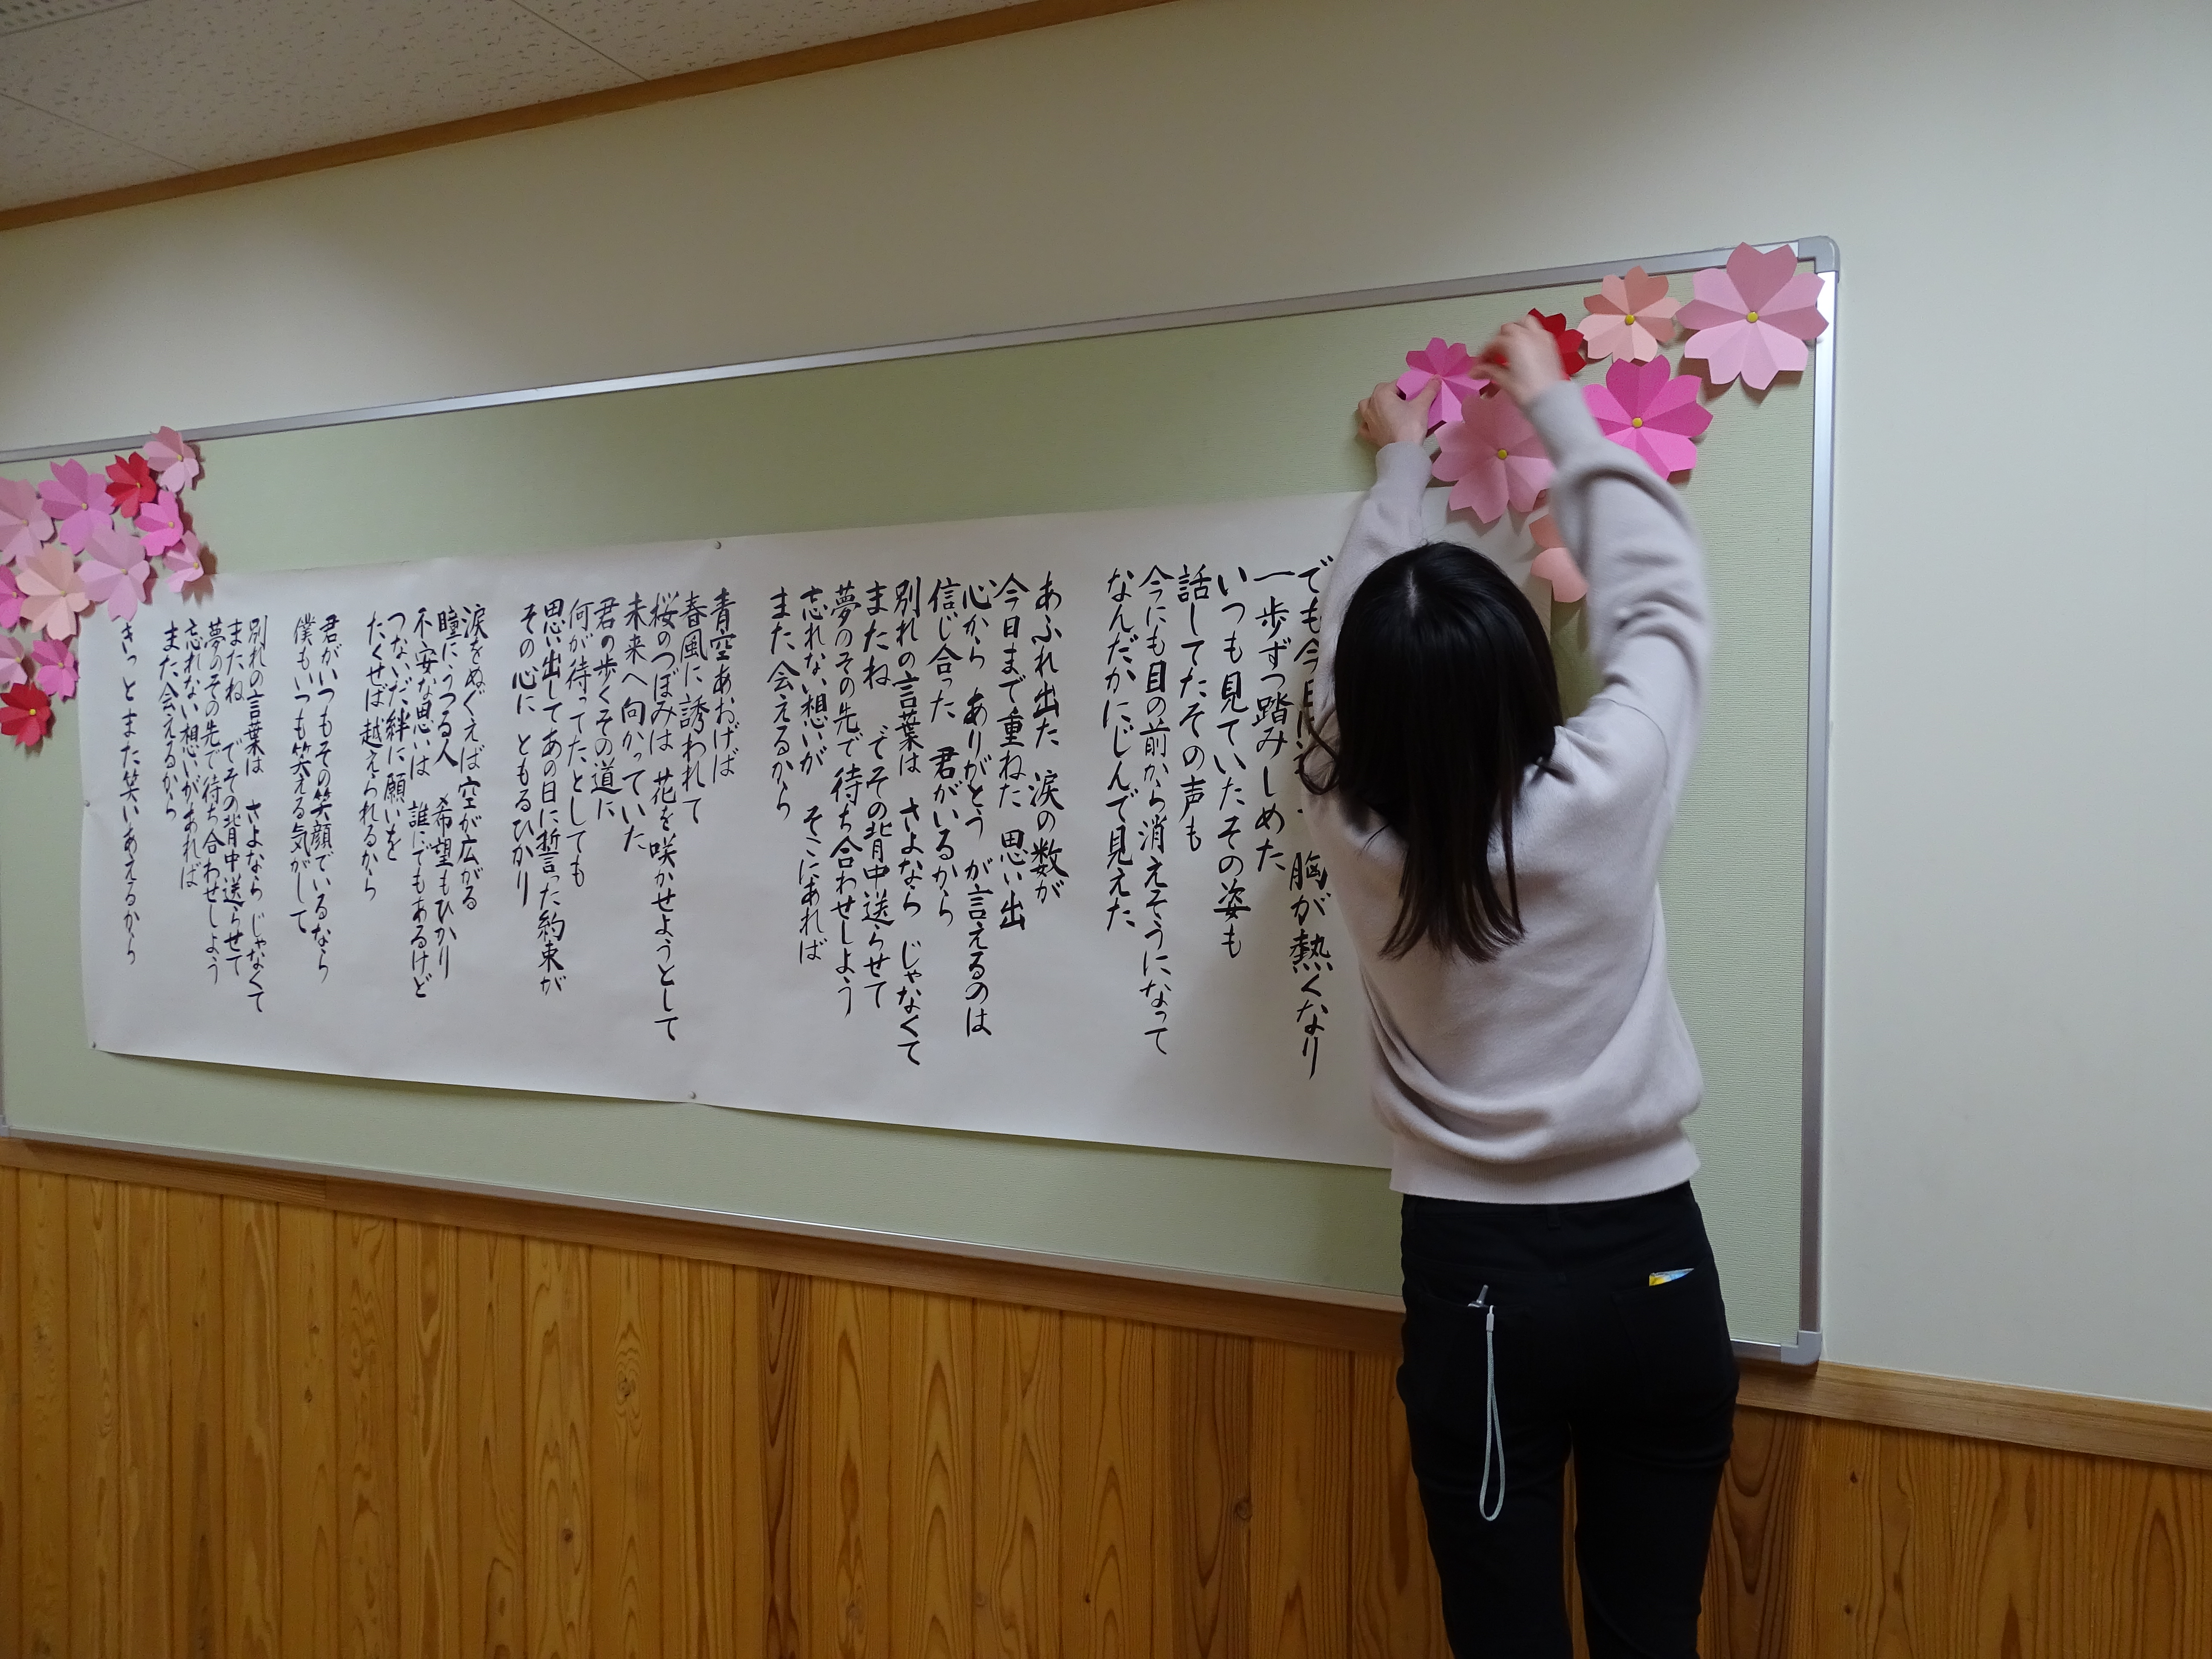 でも今日は 胸が熱くなり
一歩ずつ踏みしめた
いつも見ていたその姿も
話してたその声も
今にも目の前から消えそうになって
なんだかにじんで見えた
あふれ出た 涙の数が
今日まで重ねた 思い出
心から ありがとう が言えるのは
信じ合った 君がいるから
別れの言葉は さよなら じゃなくて
またね でその背中送らせて
夢のその先で待ち合わせしよう
忘れない想いが そこにあれば
また会えるから
青空あおげば
春風に誘われて
桜のつぼみは 花を咲かせようとして
未来へ向かっていた
君の歩くその道に
何が待ってたとしても
思い出してあの日に誓った約束が
その心に ともるひかり
涙をぬぐえば空が広がる
瞳にうつる人 希望もひかり
不安な思いは 誰にでもあるけど
つないだ絆に願いを
たくせば越えられるから
君がいつもその笑顔でいるなら
僕もいつも笑える気がして
別れの言葉は さよなら じゃなくて
またね でその背中送らせて
夢のその先で待ち合わせしよう
忘れない想いがあれば
また会えるから
きっとまた笑いあえるから